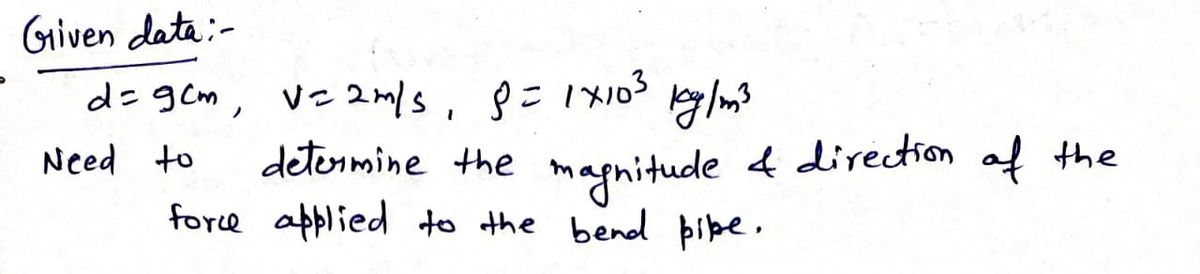 Given data:-
d = 9cm, v = 2m/s, ρ = 1×10³ kg/m³
Need to determine the magnitude & direction of the
force applied to the bend pipe.